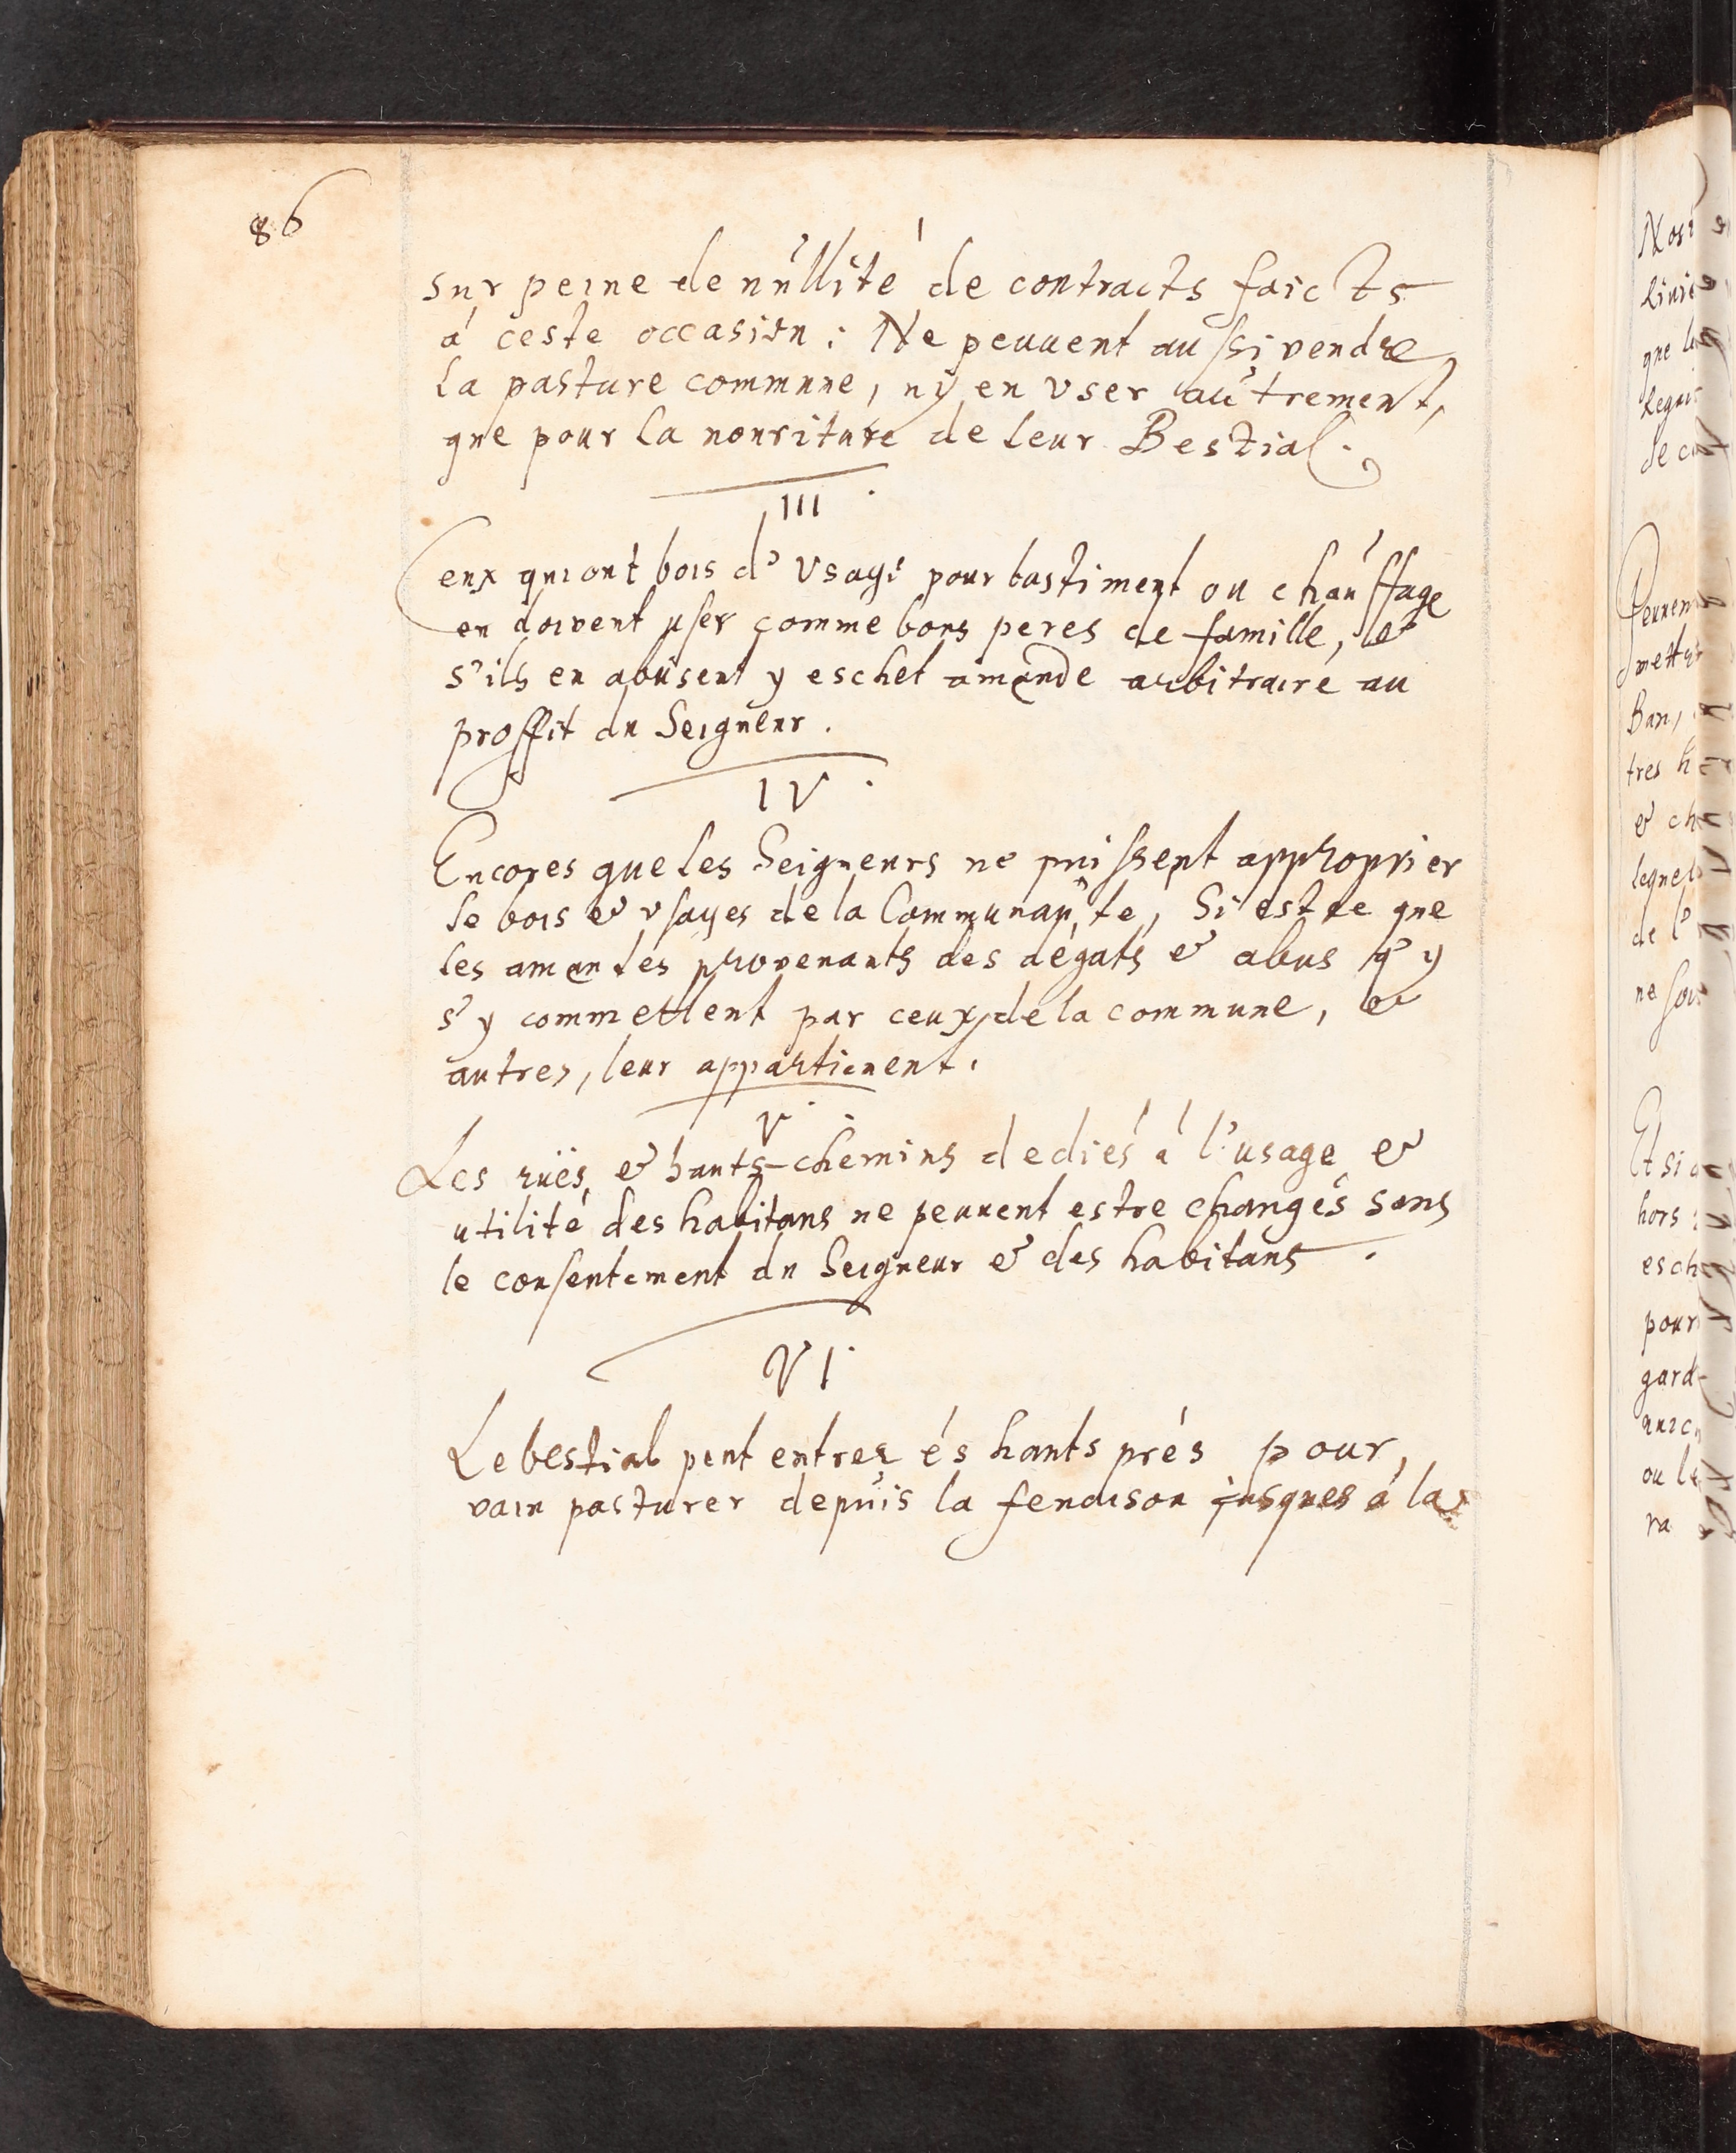 86
sur peine de nullité de contracts faicts
à ceste occasion : Ne peuuent aussi vendre
la pasture commune, ny en vser autrement,
que pour la nouriture de leur Bestial.
III.
Ceux qui ont bois d'vsage pour bastiment ou chauffage
en doivent user comme bons peres de famille, et
s'ils en abusent y eschet amande arbitraire au
proffit du Seigneur.
IV.
Encores que les Seigneurs ne puissent approprier
le bois & vsages de la Communauté, Si est ce que
les amandes provenants des dégats & abus q' y
s'y commettent par ceux de la commune, &
autres, leur apparticnent.
V.
Les rües & hauts-chemins dediés à l'usage &
utilité des habitans ne peuuent estre changés sans
le consentement du Seigneur & des habitans.
VI.
Le bestial peut entrer és hauts prés pour,
vain pasturer depuis la fenaison jusques à la